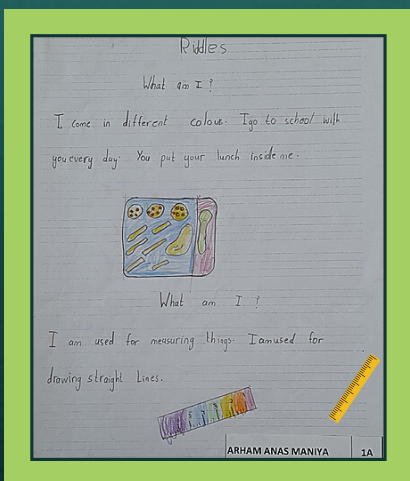 Riddles
What am I?
I come in different colour. I go to school with
you every day. You put your lunch inside me.
What am I ?
I am used for measuring things. I am used for
drawing straight Lines.
ARHAM ANAS MANIYA 1A